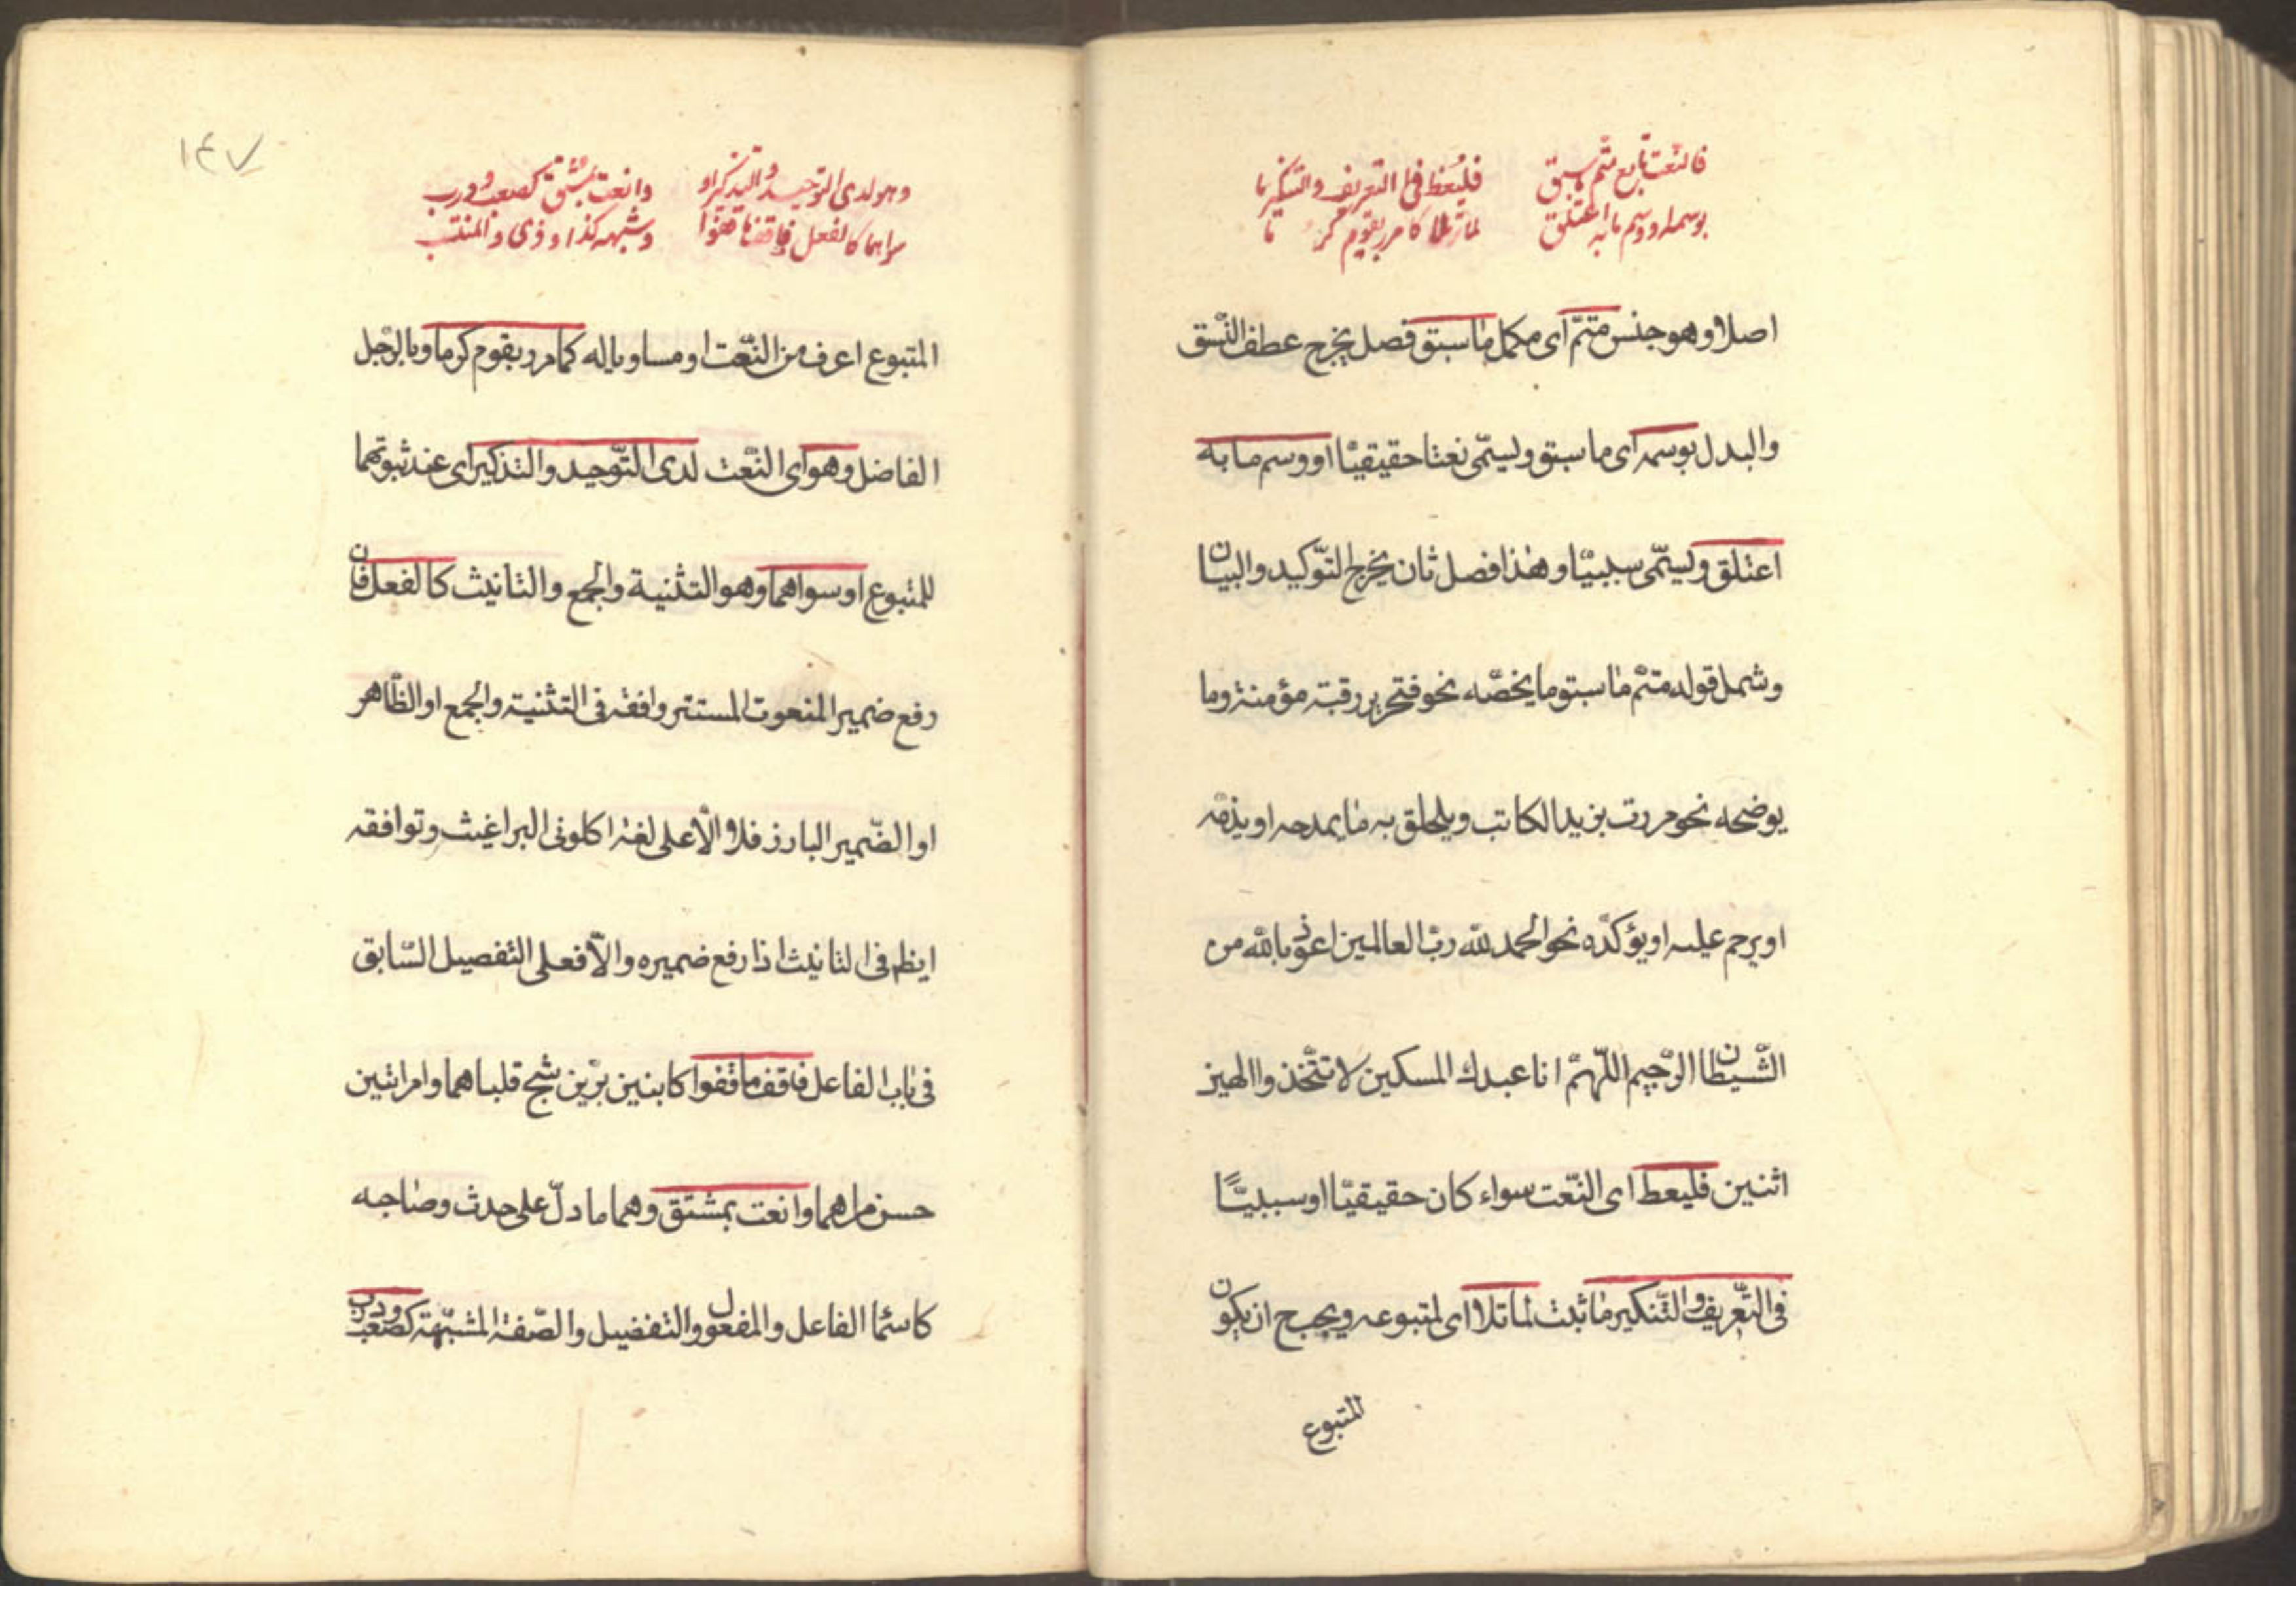 فالنعت تابع متم ما سبق فليعط في التعريف والتنكير ما
بوسمه او وسم ما به اعتلق لما تلا كامرر بقوم كرما
اصلا وهو جنس متمّ اى مكمل ما سبق فصل يخرج عطف النّسق
والبدل بوسمه اى ما سبق ويسمّى نعتا حقيقيّا او وسم ما به
اعتلق ويسمّى سببيّا وهذا فصل ثان يخرج التّوكيد والبيان
وشمل قوله متمّ ما سبق ما يخصّه نحو فتحرير رقبة مؤمنة وما
يوضحه نحو مررت بزيد الكاتب ويلحق به ما يمدحه او يذمّه
او يرحم عليه او يؤكدّه نحو الحمد لله ربّ العالمين اعوذ بالله من
الشّيطان الرّجيم اللّهمّ انا عبدك المسكين لا تتّخذوا الهين
اثنين فليعط اى النّعت سواء كان حقيقيّا او سببيّا
فى التّعريف والتّنكير ما ثبت لما تلا اى لمتبوعه ويجب ح ان يكون
المتبوع
١٤٧
وهو لدى التوحيد والتذكير او وانعت بمشتق كصعب وذرب
سواهما كالفعل فاقف ما قفوا وشبهه كذا وذى والمنتسب
المتبوع اعرف من النّعت او مساويا له كامرر بقوم كرما وبالرّجل
الفاضل وهو اى النّعت لدى التّوحيد والتذكير اى عند ثبوتهما
للمتبوع او سواهما وهو التثنية والجمع والتانيث كالفعل فان
رفع ضمير المنعوت المستتر وافقه فى التثنية والجمع او الظّاهر
او الضّمير البارز فلا والاّ على لغة اكلونى البراغيث وتوافقه
ايظم فى التانيث اذا رفع ضميره والاّ فعلى التفصيل السّابق
فى باب الفاعل فاقف ما قفوا كابنين برّين شج قلباهما وامراتين
حسن مراهما وانعت بمشتق وهما ما دلّ على حدث وصاحبه
كاسمّا الفاعل والمفعول والتفضيل والصّفة المشبّهة كصعب وذرب